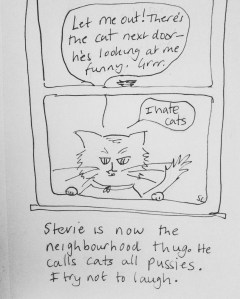 Let me out! There's
the cat next door—
he's looking at me
funny. Grrr.
I hate
cats
SC
Stevie is now the
neighbourhood thug. He
calls cats all pussies.
I try not to laugh.